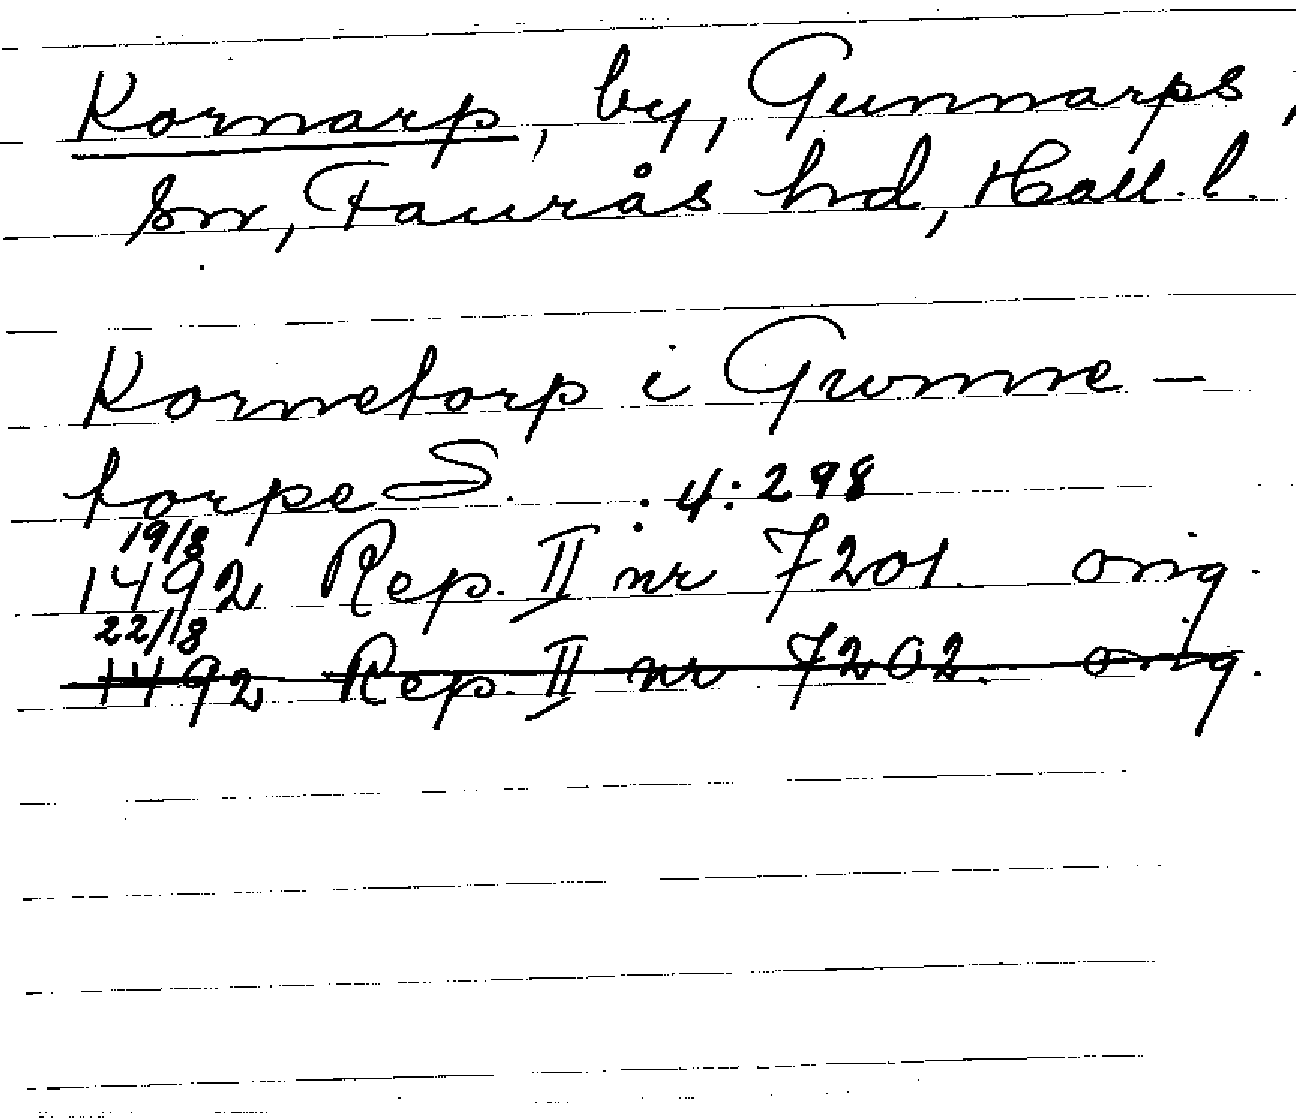 Kornarp, by, Gunnarps
sn, Faurås hd, Hall. l.
Kornetorp i Gwnne-
torpe S. : 4:298
19/8
1492 Rep. II nr 7201 orig.
22/8
1492 Rep. II nr 7202. orig.